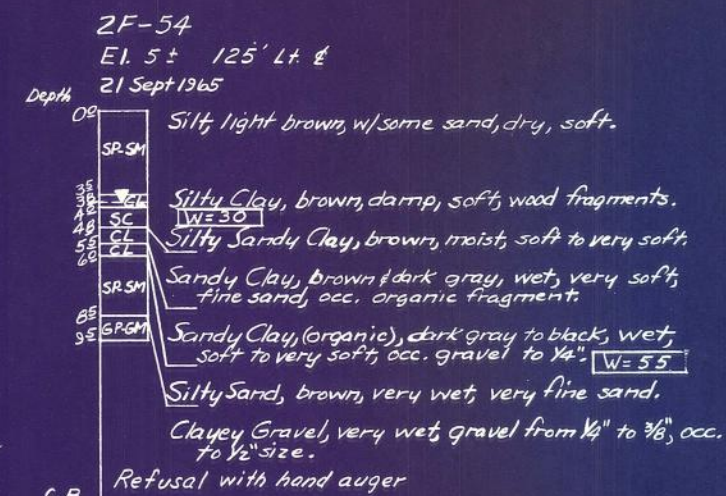 2F-54
El. 5± 125' Lt. ℄
21 Sept 1965
Depth
0º
SP-SM
Silt, light brown, w/some sand, dry, soft.
3⁵
CL
Silty Clay, brown, damp, soft, wood fragments.
SC
W=30
4⁸
CL
Silty Sandy Clay, brown, moist, soft to very soft.
5⁵
CL
6⁰
Sandy Clay, brown & dark gray, wet, very soft,
SP-SM
fine sand, occ. organic fragment.
8⁵
GP-GM
9⁵
Sandy Clay, (organic), dark gray to black, wet,
soft to very soft, occ. gravel to 1/4". W=55
Silty Sand, brown, very wet, very fine sand.
Clayey Gravel, very wet, gravel from 1/4" to 3/8", occ.
to 1/2" size.
Refusal with hand auger